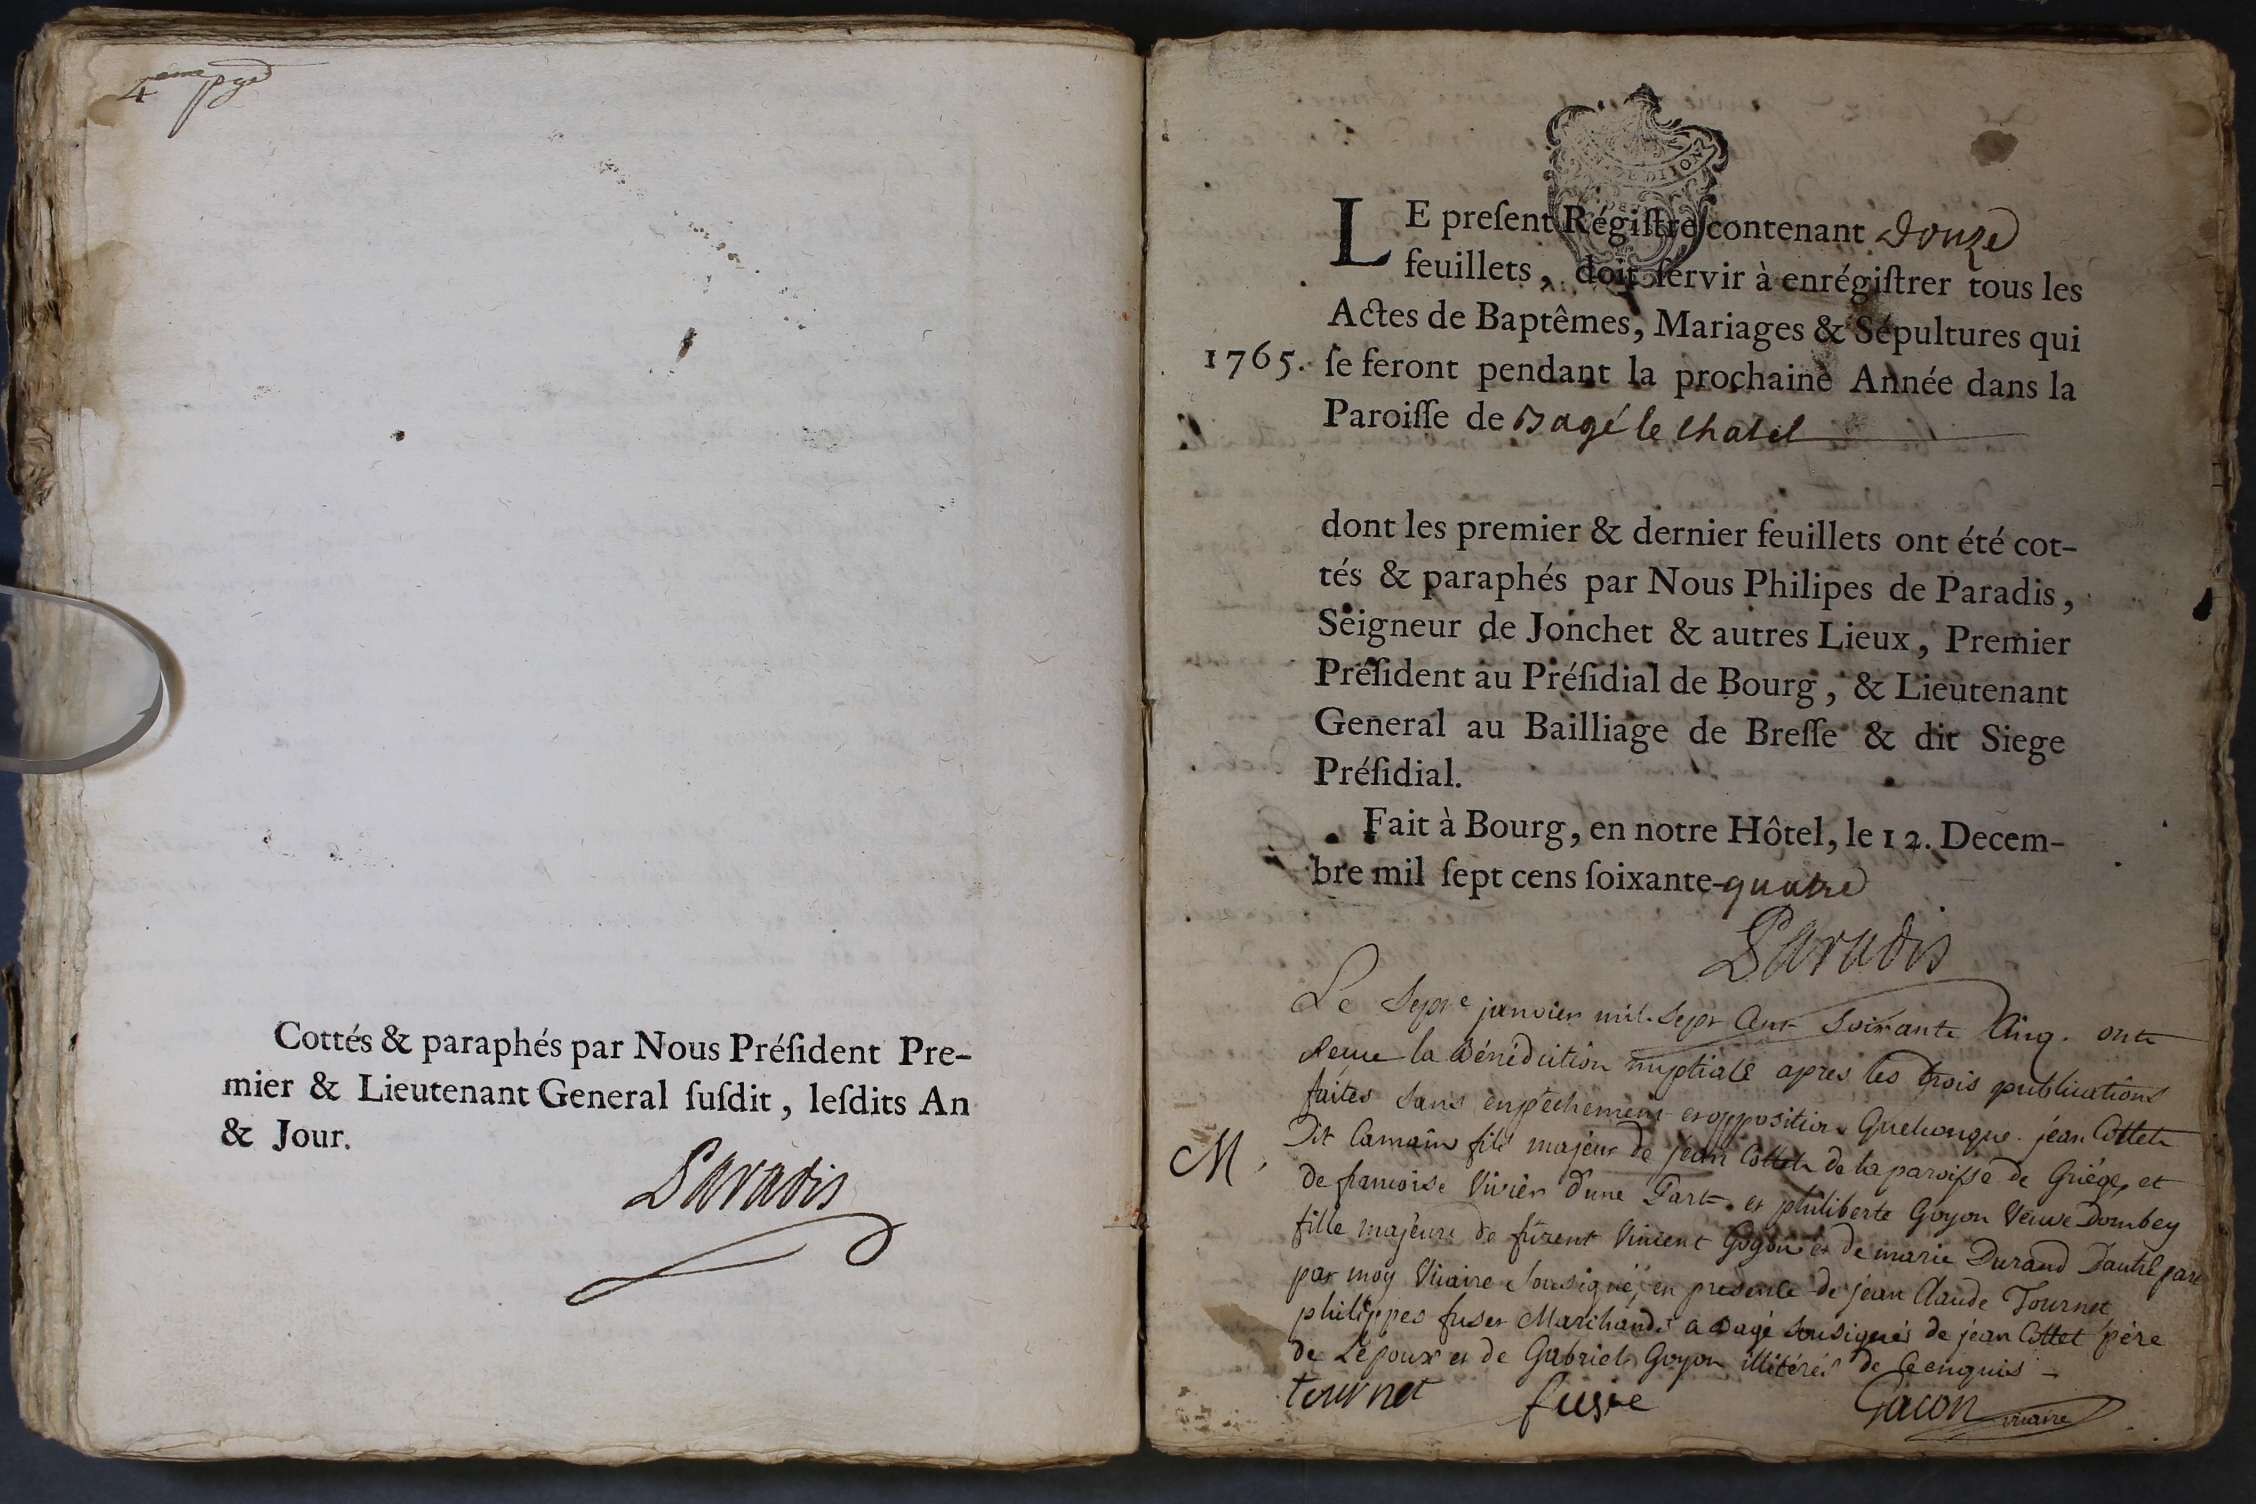 4eme pge
Cottés & paraphés par Nous Préſident Pre-
mier & Lieutenant General ſuſdit, leſdits An
& Jour.
Paradis
LE preſent Régiſtre contenant douze
feuillets, doit ſervir à enrégiſtrer tous les
Actes de Baptêmes, Mariages & Sépultures qui
1765. ſe feront pendant la prochaine Année dans la
Paroiſſe de Bagé le Chatel
dont les premier & dernier feuillets ont été cot-
tés & paraphés par Nous Philipes de Paradis,
Seigneur de Jonchet & autres Lieux, Premier
Préſident au Préſidial de Bourg, & Lieutenant
General au Bailliage de Breſſe & dit Siege
Préſidial.
Fait à Bourg, en notre Hôtel, le 12. Decem-
bre mil ſept cens ſoixante-quatre
Paradis
Le Sept e janvier mil Sept Cent Soixante Cinq. ont
Receu la bénédiction nuptiale apres les trois publications
faites Sans enpêchement et opposition Quelconque. jean Collet
M, Dit Camain fils majeur de jean Collet de la paroisse de Griége, et
de francoise Vivier d'une Part. et philiberte Goyon Veuve Dombey
fille majeure de furent Vincent Goyon et de marie Durand Dautre part
par moy Vicaire Sousigné, en presence de jean Claude Tournet
philippes fuser Marchands a Bagé Sousignés de jean Collet père
de Lepoux et de Gabriel Goyon illitérés de Ce enquis
tournet fusie Gacon vicaire